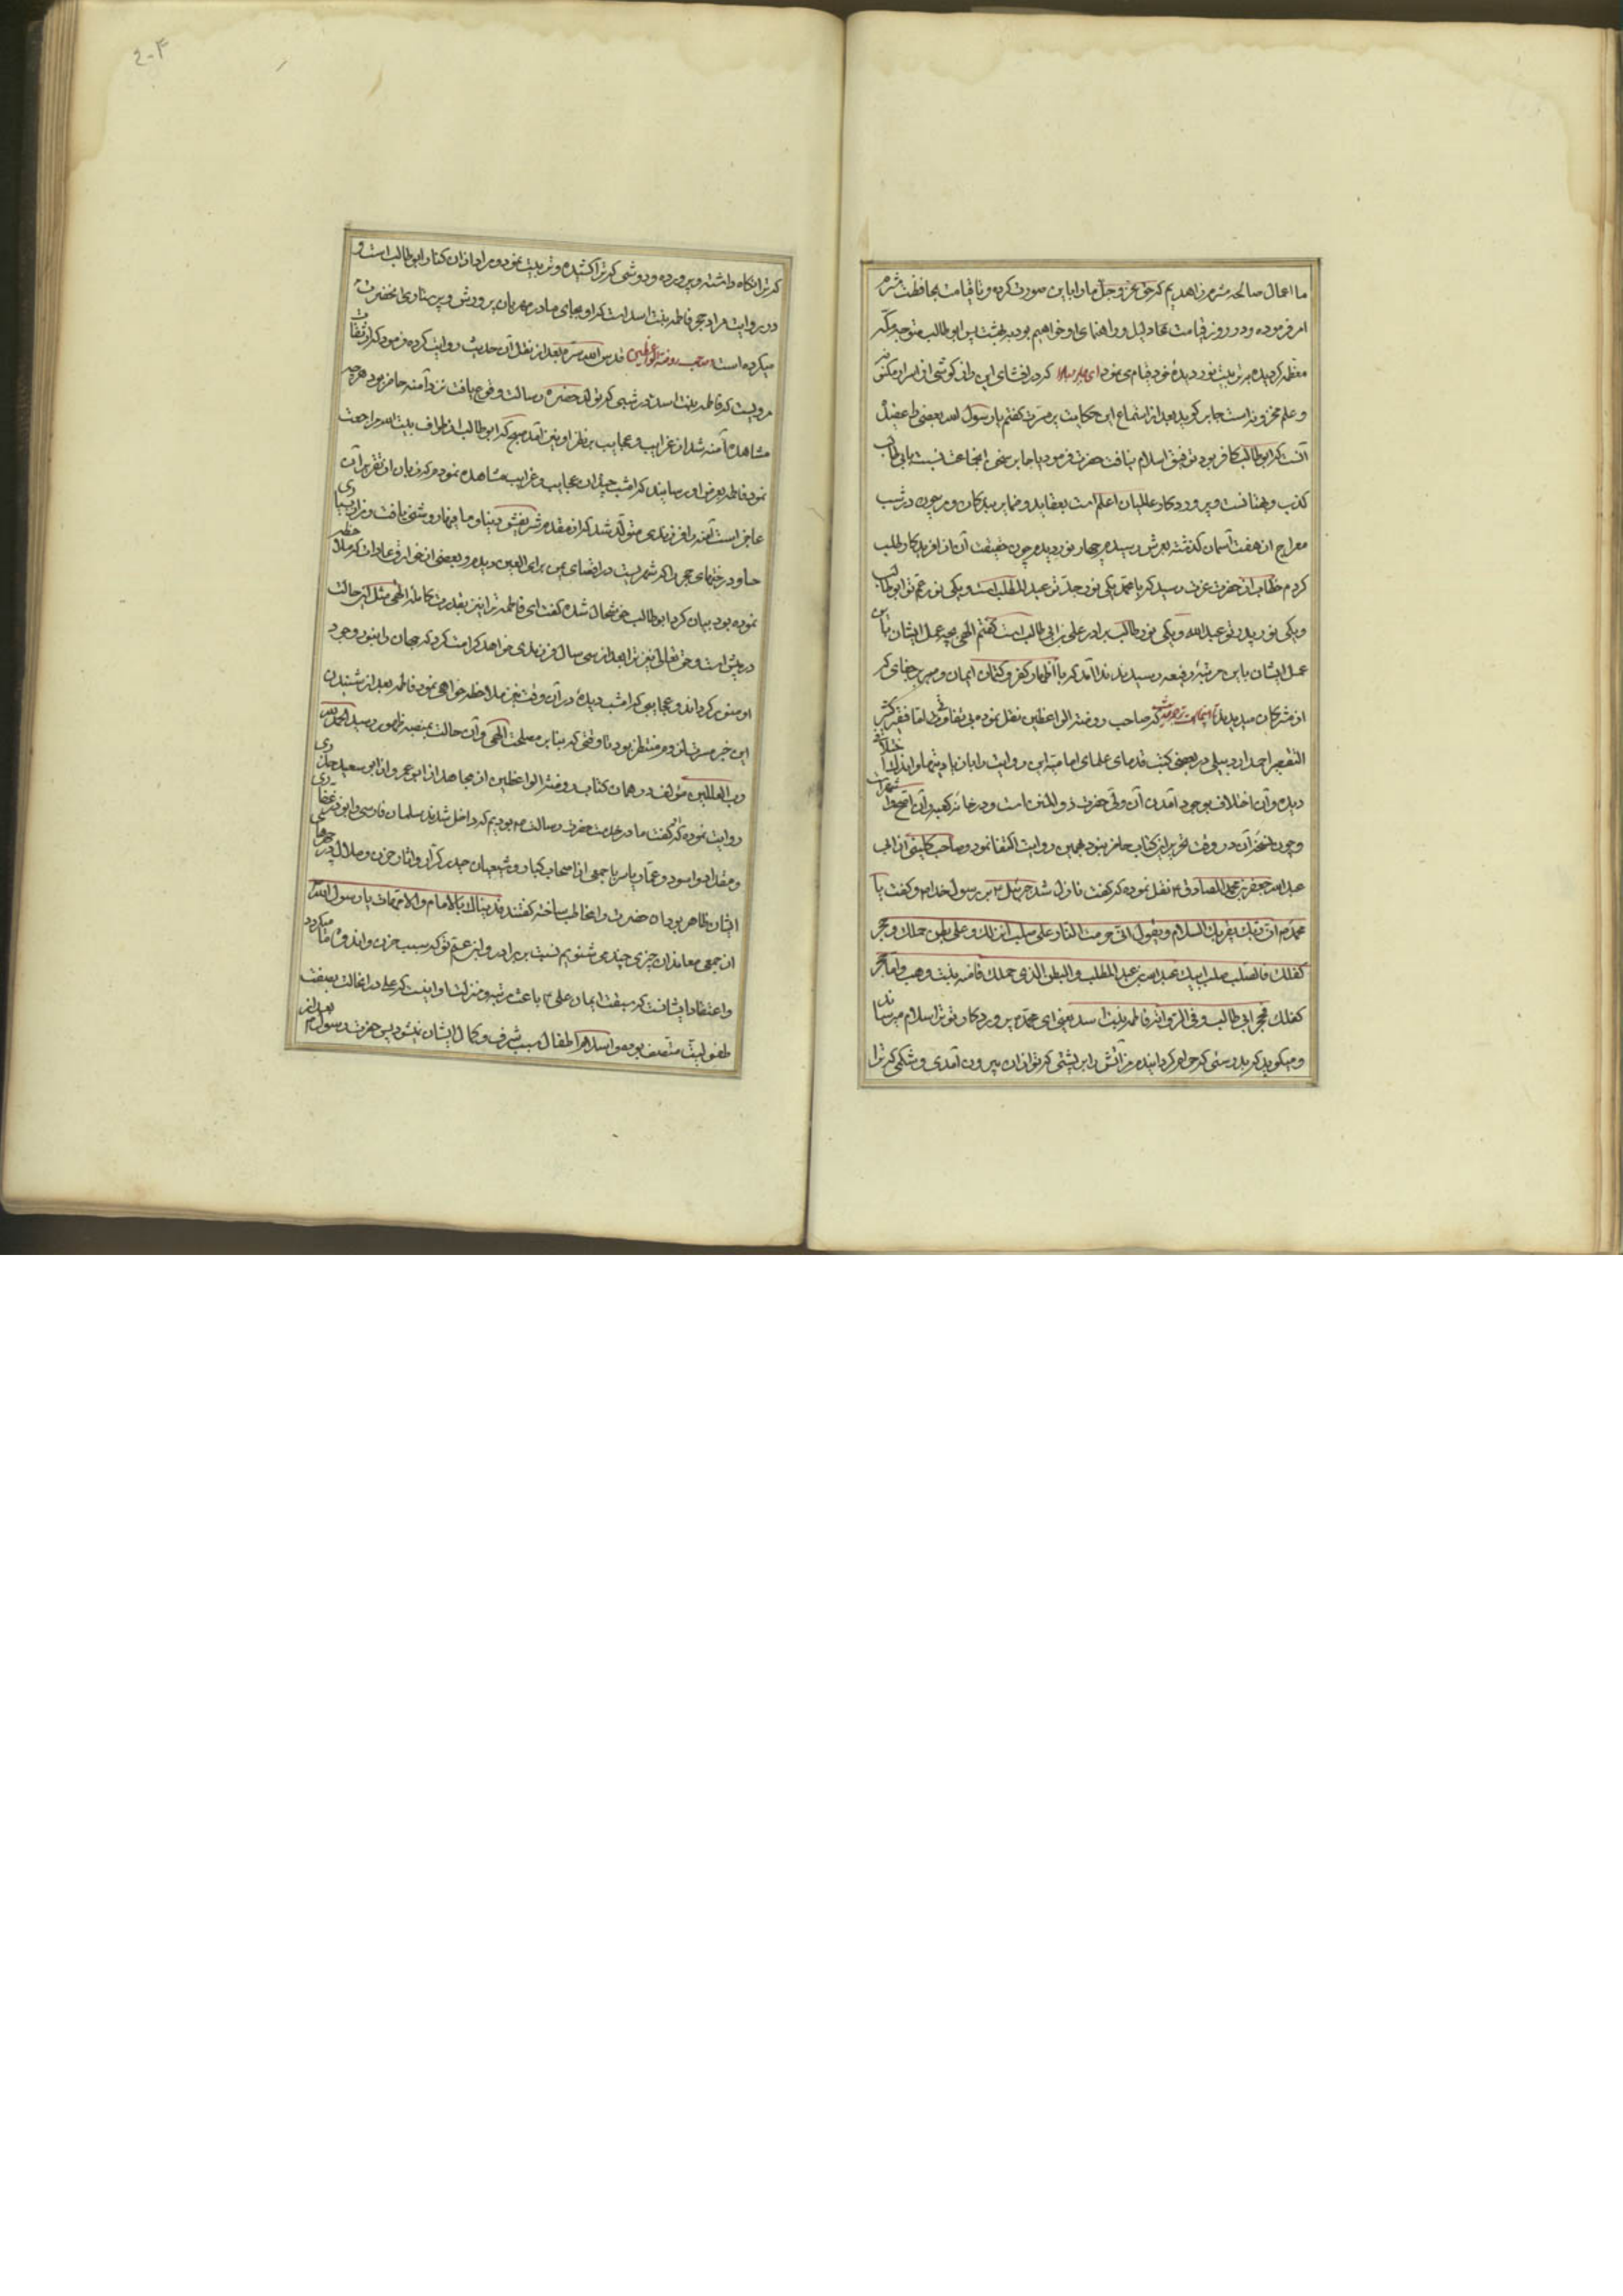 ما اعمال صالحه مثرم زاهدیم که حق عز وجل ما را باین صورت کرده و تا قیامت بمحافظت مثرم
امر فرموده و در روز قیامت عما دلیل و راهنمای او خواهیم بود به بهشت پس ابو طالب متوجه مکه
معظمه کردیده بتربیت نور دیدهٔ خود قیام می نمود ای جابر که در افشای این راز کوشی از اسرار مکنونه
و علم مخزونه است جابر کوید بعد از استماع این حکایت پر مسرت کفتم یا رسول الله بعضی را
آنست که ابو طالب کافر بود توفیق اسلام نیافت حضرت فرمود یا جابر سخن آنجماعت نسبت بابی طالب
کذب و بهتانست و پروردکار عالمیان اعلم است بعقاید و ضمایر بندکان و من چون در شب
معراج از هفت آسمان کذشته بعرش رسیدم چهار نور دیدم چون حقیقت آن از آفریدکار طلب
کردم خطاب از حضرت عزت رسید که یا محمد یکی نور جد تو عبد المطلب است و یکی نور عم تو ابو طالب
و یکی نور پدر تو عبد الله و یکی نور طالب برادر علی بن ابی طالب است کفتم الهی بچه عمل ایشان
عمل ایشان باین مرتبهٔ رفیعه رسیدند ندا آمد که با اظهار کفر و کتمان ایمان و صبر بر جفای که
از مشرکان میدیدند که صاحب روضة الواعظین نقل نموده بی تفاوتی اما فقیر کثیر
التقصیر احمد اردبیلی در بعضی کتب قدمای علمای امامیه این روایت را با زیادتیها و اندک اختلافی
دیده و آن اختلاف بوجود آمدن آن ولی حضرت ذو المنن است و در خانهٔ کعبه و آن اصح و اشهر است
و چون نسخهٔ آن در وقت تحریر این کتاب حاضر نبود بهمین روایت اکتفا نمود و صاحب کلینی از ابی
عبد الله جعفر بن محمد الصادق ع نقل نموده که کفت نازل شد جبرئیل ع بر رسول خدا ص و کفت یا
محمد ص ان ربک یقرئک السلام و یقول انی حرمت النار علی صلب انزلک و علی بطن حملک و حجر
کفلک فالصلب صلب ابیک عبد الله بن عبد المطلب و البطن الذی حملک فامنه بنت وهب و اما حجر
کفلک فحجر ابی طالب و فی الروایة فاطمه بنت اسد یعنی ای محمد ص پروردکار تو ترا سلام میرساند
و میکوید که بدرستی که حرام کردانیدم آتش را بر پشتی که تو از آن بیرون آمدی و شکمی که ترا
که ترا نکاه داشته و پرورده و دوشی که ترا کشیده و تربیت نموده مراد از آن کنار ابو طالب است و
در روایت مراد حجر فاطمه بنت اسد است که او بجای مادر مهربان پرورش و پرستاری آنحضرت
میکرده است صاحب روضة الواعظین قدس الله سره بعد از نقل آن حدیث روایت کرده فرمود که از ثقات
مرویست که فاطمه بنت اسد در شبی که تولد حضرت رسالت وقوع یافت نزد آمنه حاضر بود هر چه
مشاهدهٔ آمنه شد از غرایب و عجایب بنظر او نیز آمد صبح که ابو طالب از طواف بیت الله مراجعت
نمود فاطمه بعرض او رسانید که امشب چندان عجایب و غرایب مشاهده نمودم که زبان از تقریر آن
عاجز است آمنه را فرزندی متولد شد که از مقدم شریفش دنیا و ما فیها روشنی یافت
نموده بود بیان کرد ابو طالب خوشحال شده کفت ای فاطمه ترا نیز بقدرت کاملهٔ الهی مثل این حالت
در پیش است و حق تعالی نیز ترا بعد از سی سال فرزندی خواهد کرامت کرد که جهان را بنور وجود
او منور کرداند و عجایبی که امشب دیدهٔ در آن وقت نیز ملاحظه خواهی نمود فاطمه بعد از شنیدن
این خبر مسرت اثر منتظر بود تا وقتی که بنا بر مصلحت الهی آن حالت بمنصهٔ ظهور رسید الحمد لله
رب العالمین مؤلف در همان کتاب روضة الواعظین از مجاهد از ابن عمر و از ابو سعید خدری
روایت نموده که کفت ما در خدمت حضرت رسالت ص بودیم که داخل شدند سلمان فارسی و ابوذر غفاری
و مقداد اسود و عمار یاسر با جمعی از اصحاب کبار و شیعیان حیدر کرار و آثار حزن و ملال در چهرهای
ایشان ظاهر بود آن حضرت را مخاطب ساخته کفتند فدیناک بالاباء و الامهات یا رسول الله
از جمعی معاندان چیزی چندی شنویم نسبت ببرادر و ابن عم تو که سبب حزن و اندوه ما میکردد
و اعتقاد ایشانست که سبقت ایمان علی ع باعث مرتبه و منزلت او نیست که علی در آنحالت بصفت
طفولیت متصف بود و اسلام اطفال سبب شرف و کمال ایشان نیشود پس حضرت رسول ص بعد از